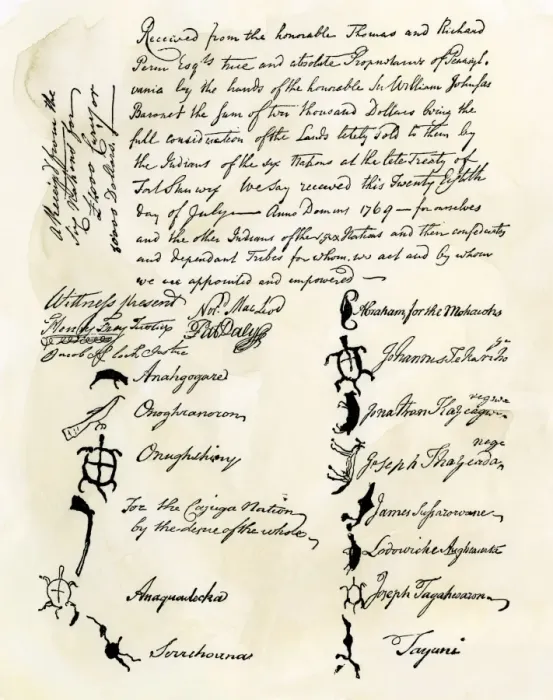 Received from the honorable Thomas and Richard
Penn Esqrs true and absolute Proprietaries of Pennsyl-
vania by the hands of the honorable Sir William Johnson
Baronet the Sum of ten thousand Dollars being the
full consideration of the Lands lately Sold to them by
the Indians of the six Nations at the late Treaty of
Fort Stanwix We say received this Twenty Eighth
day of July — Anno Domini 1769 — for ourselves
and the other Indians of the six Nations and their confederates
and dependant Tribes for whom we act and by whom
we are appointed and empowered —
Received from the
Six Nations for
Dollars
Witness present
Justice
Jacob Justice
Nor. MacLeod
Daly
Anahgogare
Onoghranoron
Onughshiny
For the Cajuga Nation
by the desire of the whole
Anaquadecka
Serrehoanas
Abraham for the Mohawks
Johannes
Jonathan
Joseph
James
Lodowicke
Joseph Tagahwaron
Tayuni